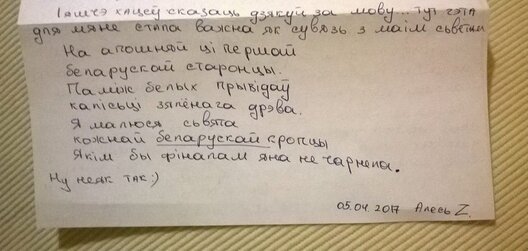 І яшчэ хацеў сказаць дзякуй за мову.. тут гэта
для мяне стала важна як сувязь з маім сьветам
На апошняй ці першай
беларускай старонцы.
Паміж белых прывідаў
калісьці зялёнага дрэва.
Я малюся сьвята
кожнай беларускай кропцы
Якім бы фіналам яна не чарнела.
Ну неяк так:)
05.04.2017 Алесь Z.